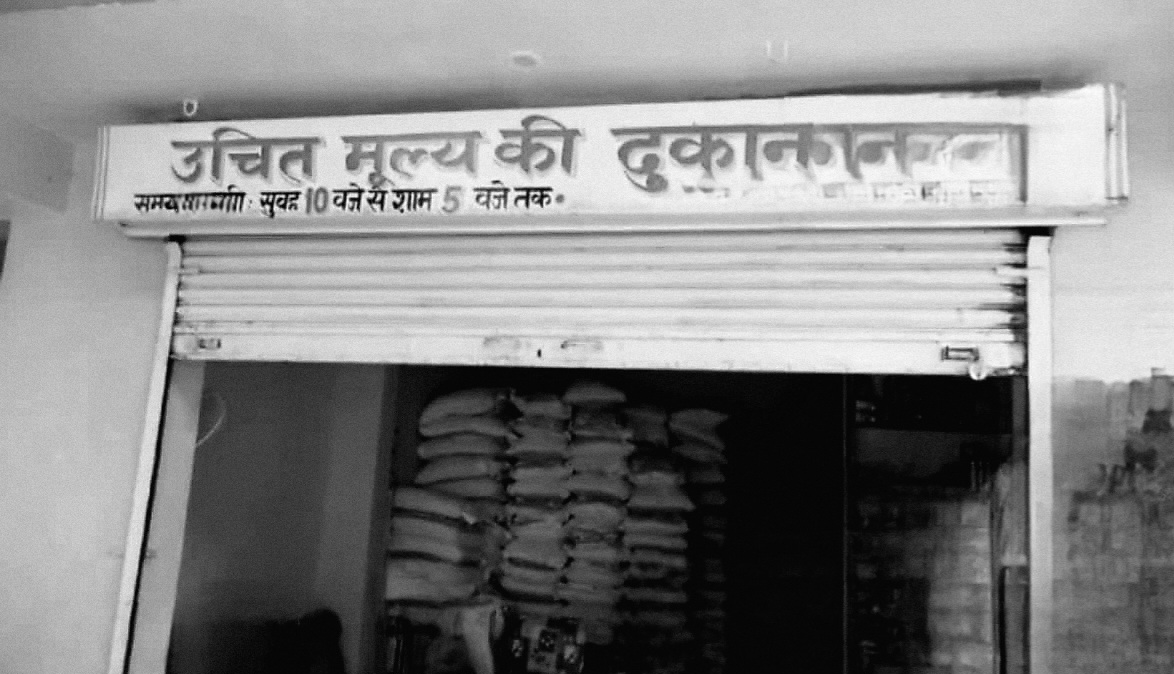 उचित मूल्य की दुकान
समय सुवह 10 वजे से शाम 5 वजे तक.